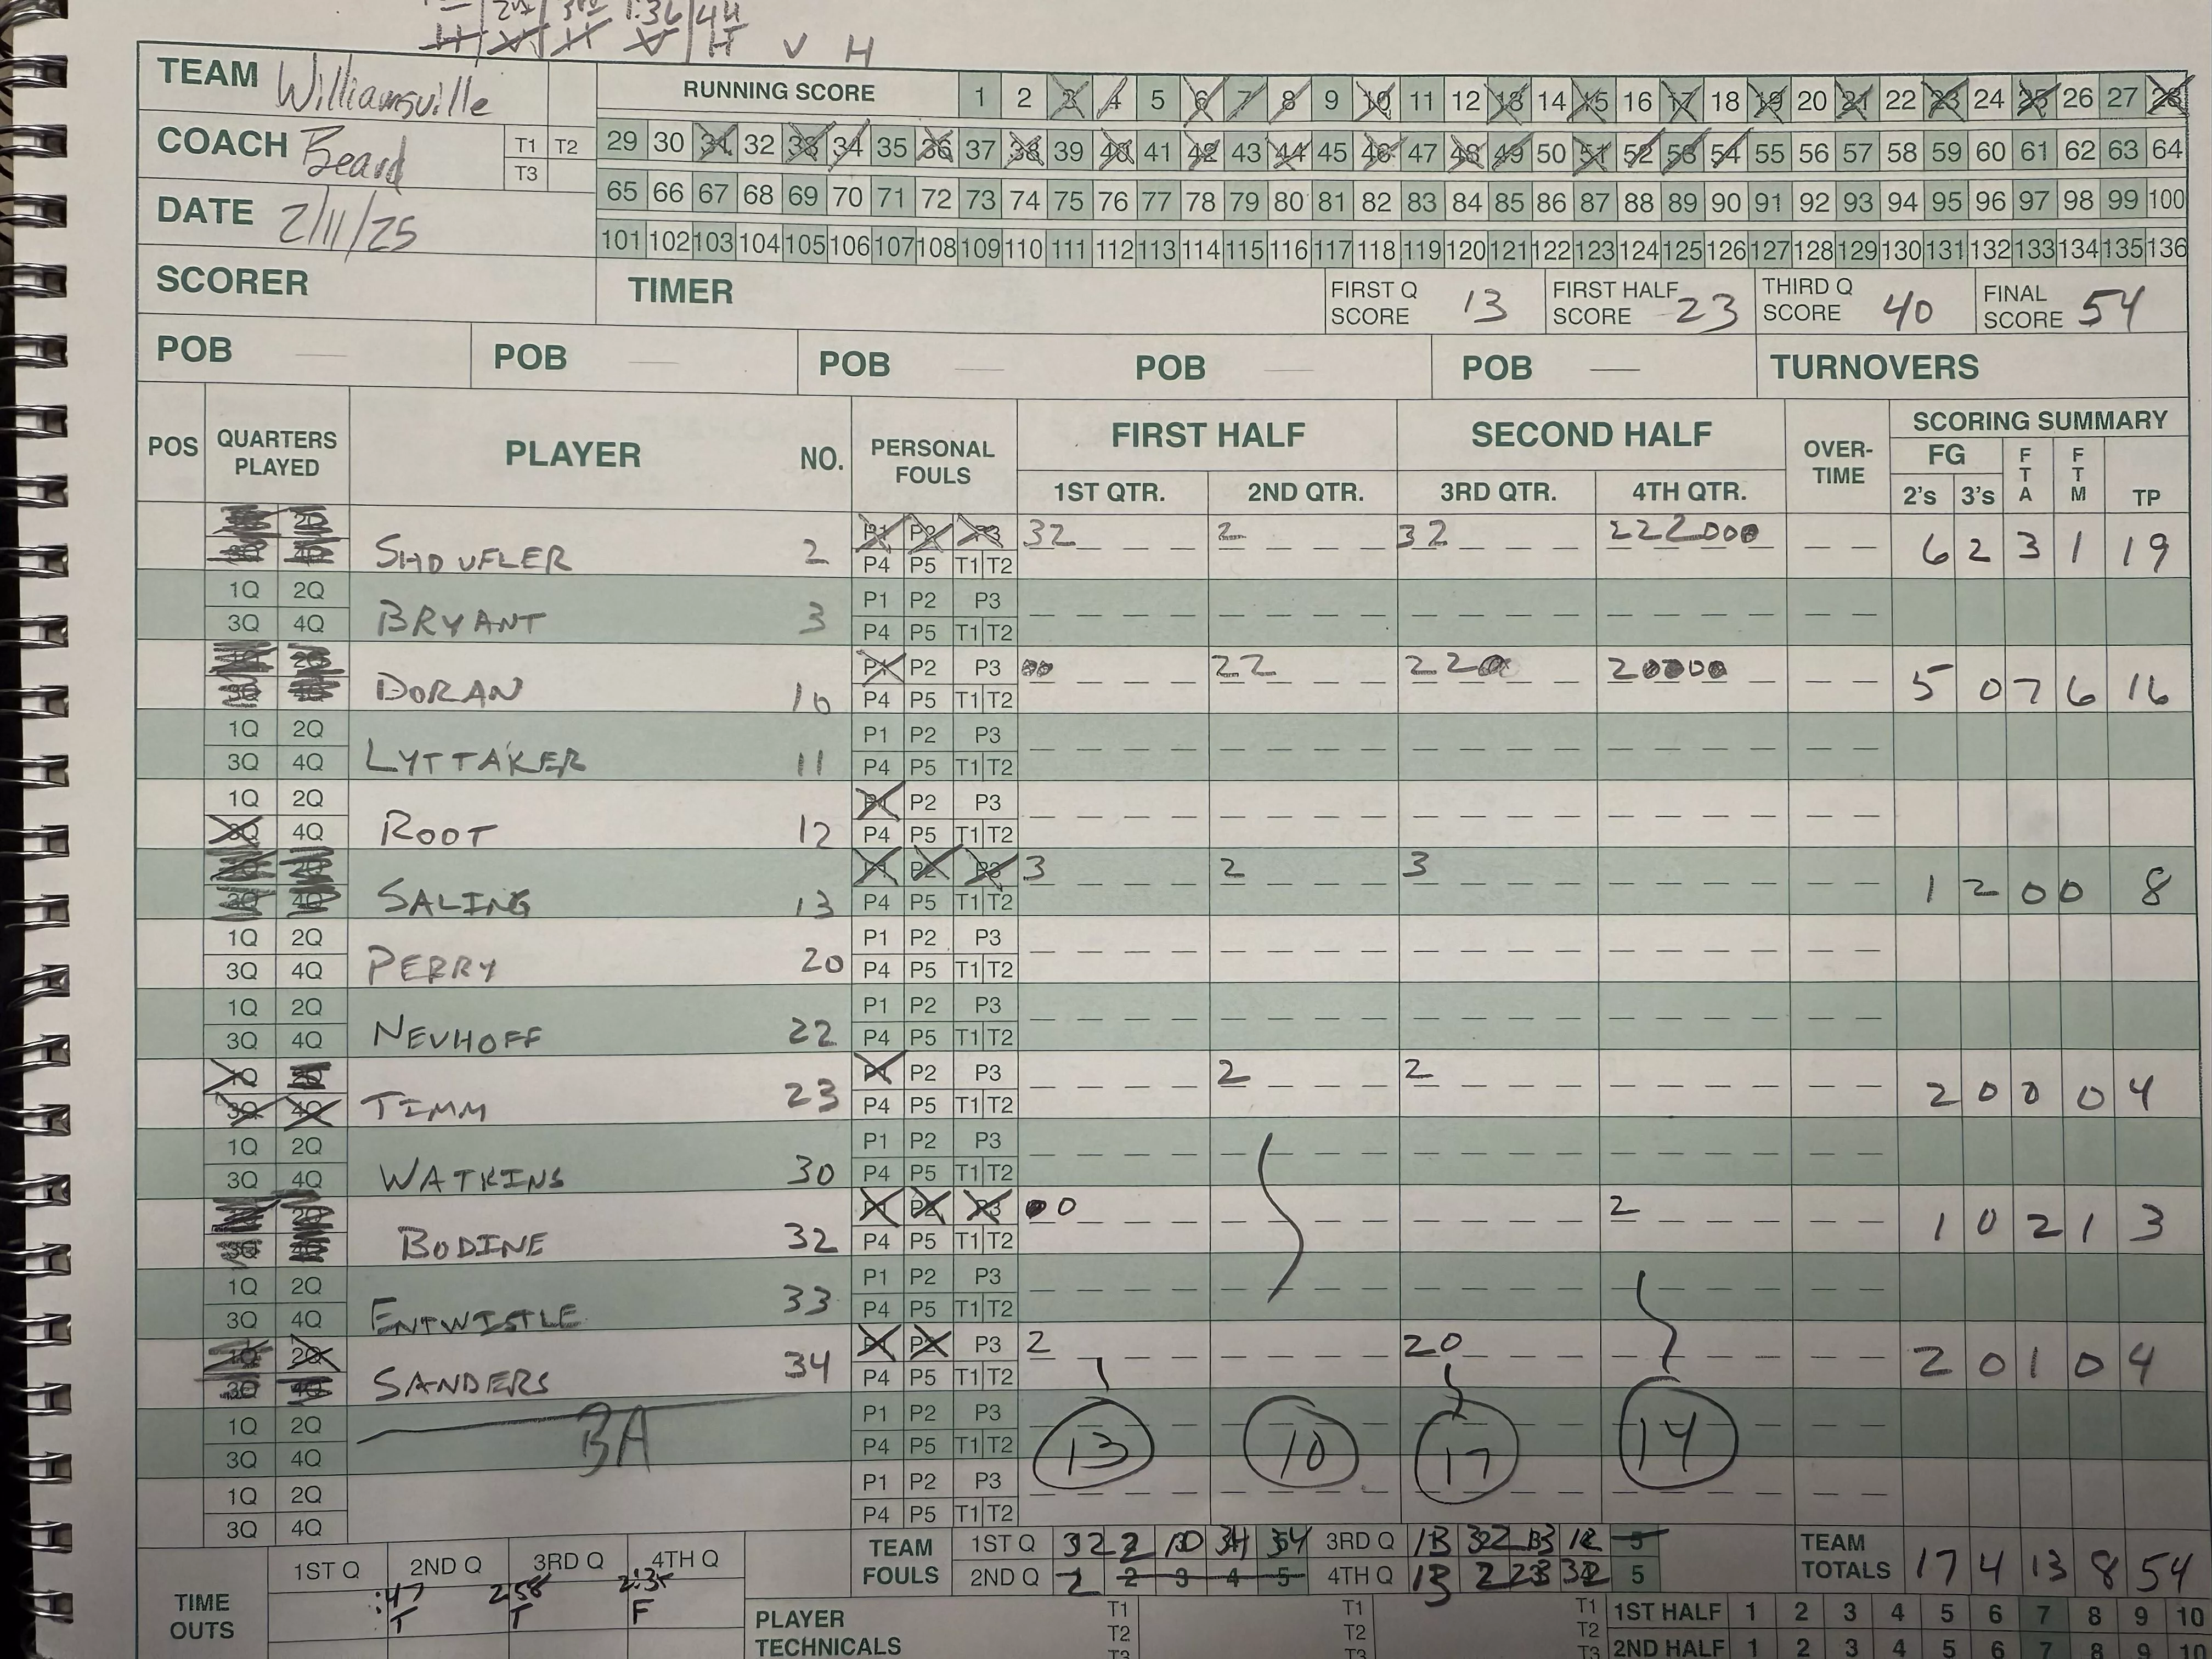 1:36 44
H V H V H V H
TEAM Williamsville
RUNNING SCORE 1 2 3 4 5 6 7 8 9 10 11 12 13 14 15 16 17 18 19 20 21 22 23 24 25 26 27 28
COACH Beard T1 T2 T3
29 30 31 32 33 34 35 36 37 38 39 40 41 42 43 44 45 46 47 48 49 50 51 52 53 54 55 56 57 58 59 60 61 62 63 64
65 66 67 68 69 70 71 72 73 74 75 76 77 78 79 80 81 82 83 84 85 86 87 88 89 90 91 92 93 94 95 96 97 98 99 100
DATE 2/11/25
101 102 103 104 105 106 107 108 109 110 111 112 113 114 115 116 117 118 119 120 121 122 123 124 125 126 127 128 129 130 131 132 133 134 135 136
SCORER TIMER FIRST Q SCORE 13 FIRST HALF SCORE 23 THIRD Q SCORE 40 FINAL SCORE 54
POB POB POB POB POB TURNOVERS
POS QUARTERS PLAYED PLAYER NO. PERSONAL FOULS FIRST HALF SECOND HALF OVER-TIME SCORING SUMMARY
1ST QTR. 2ND QTR. 3RD QTR. 4TH QTR. FG 2's 3's FTA FTM TP
SHOUFLER 2 P1 P2 P3 32 2 32 222000 6 2 3 1 19
P4 P5 T1 T2
1Q 2Q P1 P2 P3
3Q 4Q BRYANT 3 P4 P5 T1 T2
DORAN 10 P1 P2 P3 00 22 220 20000 5 0 7 6 16
P4 P5 T1 T2
1Q 2Q P1 P2 P3
3Q 4Q LYTTAKER 11 P4 P5 T1 T2
1Q 2Q P1 P2 P3
3Q 4Q ROOT 12 P4 P5 T1 T2
P1 P2 P3 3 2 3
SALING 13 P4 P5 T1 T2 1 2 0 0 8
1Q 2Q P1 P2 P3
3Q 4Q PERRY 20 P4 P5 T1 T2
1Q 2Q P1 P2 P3
3Q 4Q NEUHOFF 22 P4 P5 T1 T2
1Q 2Q P1 P2 P3 2 2
3Q 4Q TIMM 23 P4 P5 T1 T2 2 0 0 0 4
1Q 2Q P1 P2 P3
3Q 4Q WATKINS 30 P4 P5 T1 T2
P1 P2 P3 0 0 2
BODINE 32 P4 P5 T1 T2 1 0 2 1 3
1Q 2Q P1 P2 P3
3Q 4Q ENTWISTLE 33 P4 P5 T1 T2
1Q 2Q P1 P2 P3 2 20
3Q 4Q SANDERS 34 P4 P5 T1 T2 2 0 1 0 4
1Q 2Q P1 P2 P3
3Q 4Q BA P4 P5 T1 T2 13 10 17 14
1Q 2Q P1 P2 P3
3Q 4Q P4 P5 T1 T2
TEAM FOULS 1ST Q 32 2 10 34 34 3RD Q 13 32 13 12 5 TEAM TOTALS 17 4 13 8 54
2ND Q 2 2 3 4 5 4TH Q 13 2 23 32 5
TIME OUTS 1ST Q 2ND Q 3RD Q 4TH Q
:47 2:58 2:35
T T F
PLAYER TECHNICALS T1 T2 T3 T1 T2 T3 T1 T2 T3
1ST HALF 1 2 3 4 5 6 7 8 9 10
2ND HALF 1 2 3 4 5 6 7 8 9 10